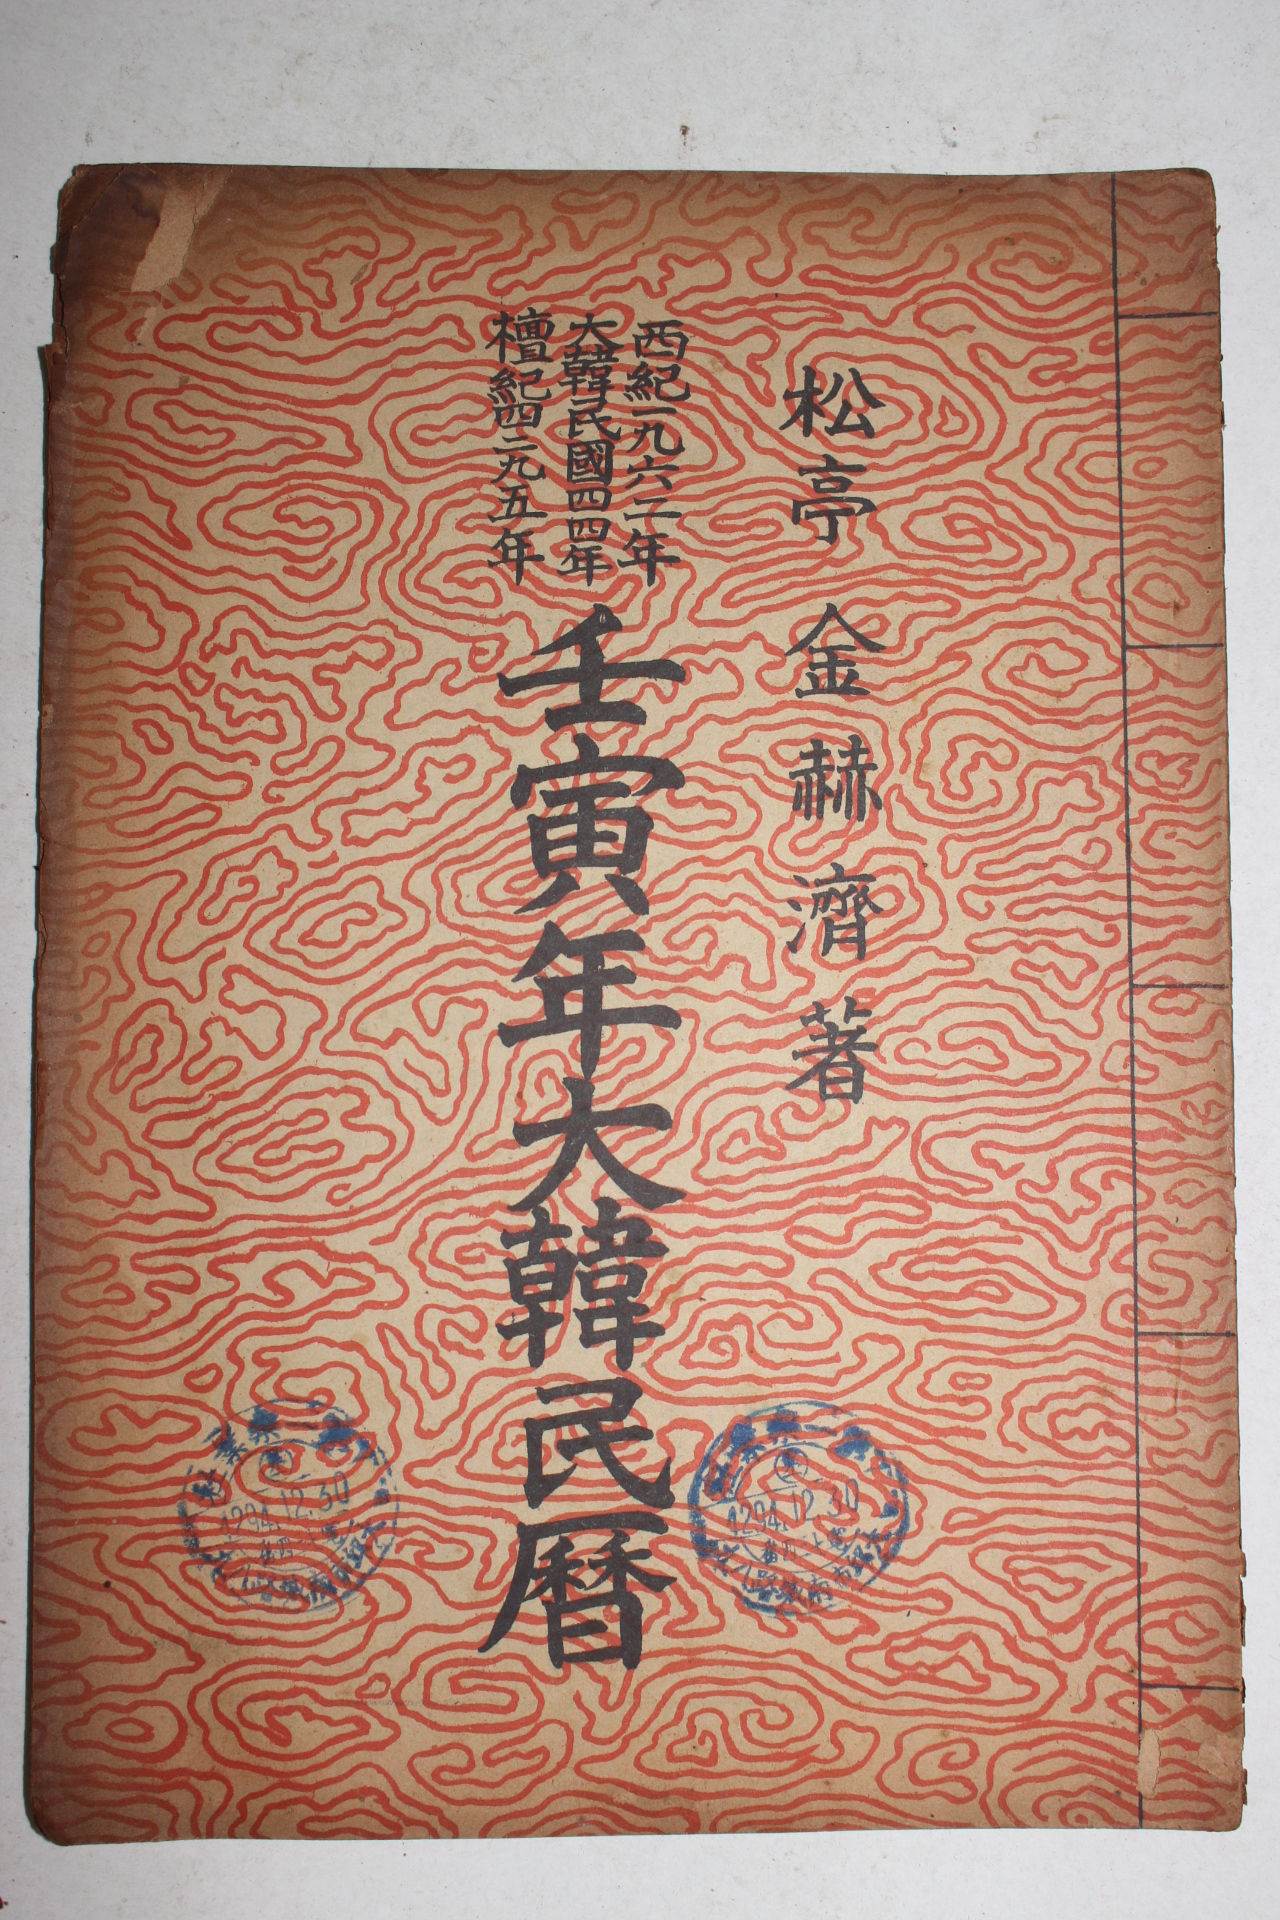 松亭 金赫濟 著
西紀一九六二年
大韓民國四四年
檀紀四二九五年
壬寅年大韓民曆
4294.12.30
4294.12.30